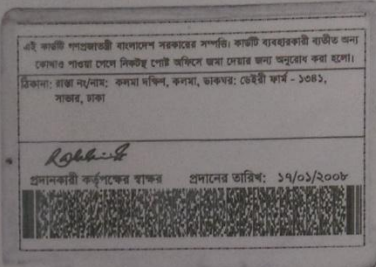 এই কার্ডটি গণপ্রজাতন্ত্রী বাংলাদেশ সরকারের সম্পত্তি। কার্ডটি ব্যবহারকারী ব্যতীত অন্য
কোথাও পাওয়া গেলে নিকটস্থ পোষ্ট অফিসে জমা দেয়ার জন্য অনুরোধ করা হলো।
ঠিকানা: রাস্তা নং/নাম: কলমা দক্ষিণ, কলমা, ডাকঘর: ডেইরী ফার্ম - ১৩৪১,
সাভার, ঢাকা
প্রদানকারী কর্তৃপক্ষের স্বাক্ষর প্রদানের তারিখ: ১৭/০১/২০০৮